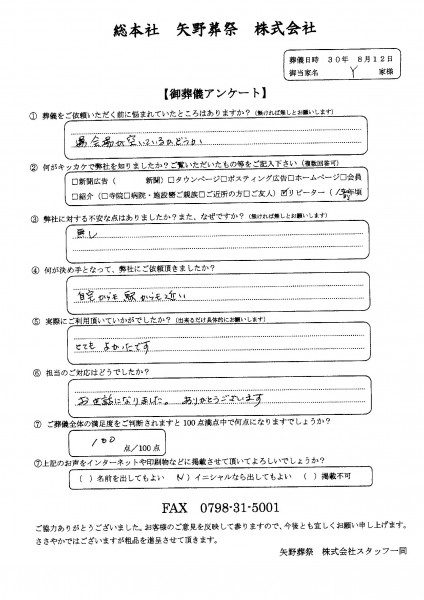 総本社 矢野葬祭 株式会社
葬儀日時 30年 8月12日
御当家名 Y 家様
【御葬儀アンケート】
① 葬儀をご依頼いただく前に悩まれていたところはありますか?(無ければ無しとお願いします)
会場が空いているのどうか
② 何がキッカケで弊社を知りましたか?ご覧いただいたもの等をご記入下さい(複数回答可)
□新聞広告( 新聞)□タウンページ□ポスティング広告□ホームページ□会員
□紹介(□寺院□病院・施設□ご親族□ご近所の方□ご友人)☑リピーター( 年頃)
③ 弊社に対する不安な点はありましたか?また、なぜですか?(無ければ無しとお願いします)
無し
④ 何が決め手となって、弊社にご依頼頂きましたか?
自宅からも駅からも近い
⑤ 実際にご利用頂いていかがでしたか?(出来るだけ具体的にお願いします)
とても よかったです
⑥ 担当のご対応はどうでしたか?
お世話になりました。 ありがとうございます
⑦ ご葬儀全体の満足度をご判断されますと100点満点中で何点になりますでしょうか?
100 点/100点
⑦上記のお声をインターネットや印刷物などに掲載させて頂いてよろしいでしょうか?
( )名前を出してもよい ( )イニシャルなら出してもよい ( )掲載不可
FAX 0798-31-5001
ご協力ありがとうございました。お客様のご意見を反映して参りますので、今後とも宜しくお願い申し上げます。
ささやかではございますが粗品を進呈させて頂きます。
矢野葬祭 株式会社スタッフ一同